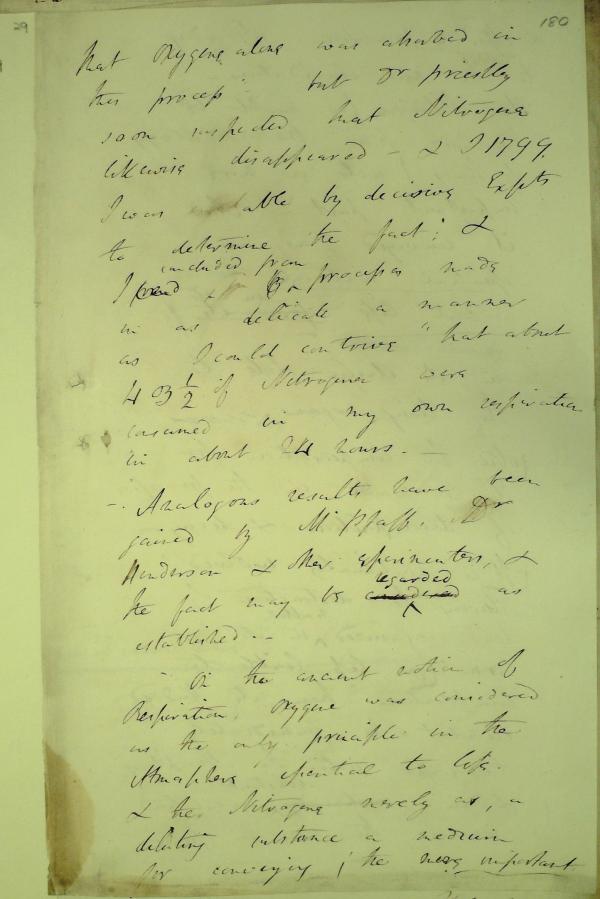 29 180
that oxygene alone was absorbed in
this process but Dr priestley
soon suspected that Nitrogene
likewise disappeared — & I 1799.
I was able by decisive Expts
to determine the fact; &
I concluded from processes made
in as delicate a manner
as I could contrive "that about
4 oz ½ of Nitrogene were
consumed in my own respiration
in about 24 hours. —
—. Analogous results have been
gained by M. Pfaff. Dr
Henderson & other experimenters, &
the fact may be regarded as
established. —
— On the ancient notion of
Respiration, oxygene was considered
as the only principle in the
Atmosphere essential to life.
& the Nitrogene merely as, a
diluting substance a medium
for conveying; the more important